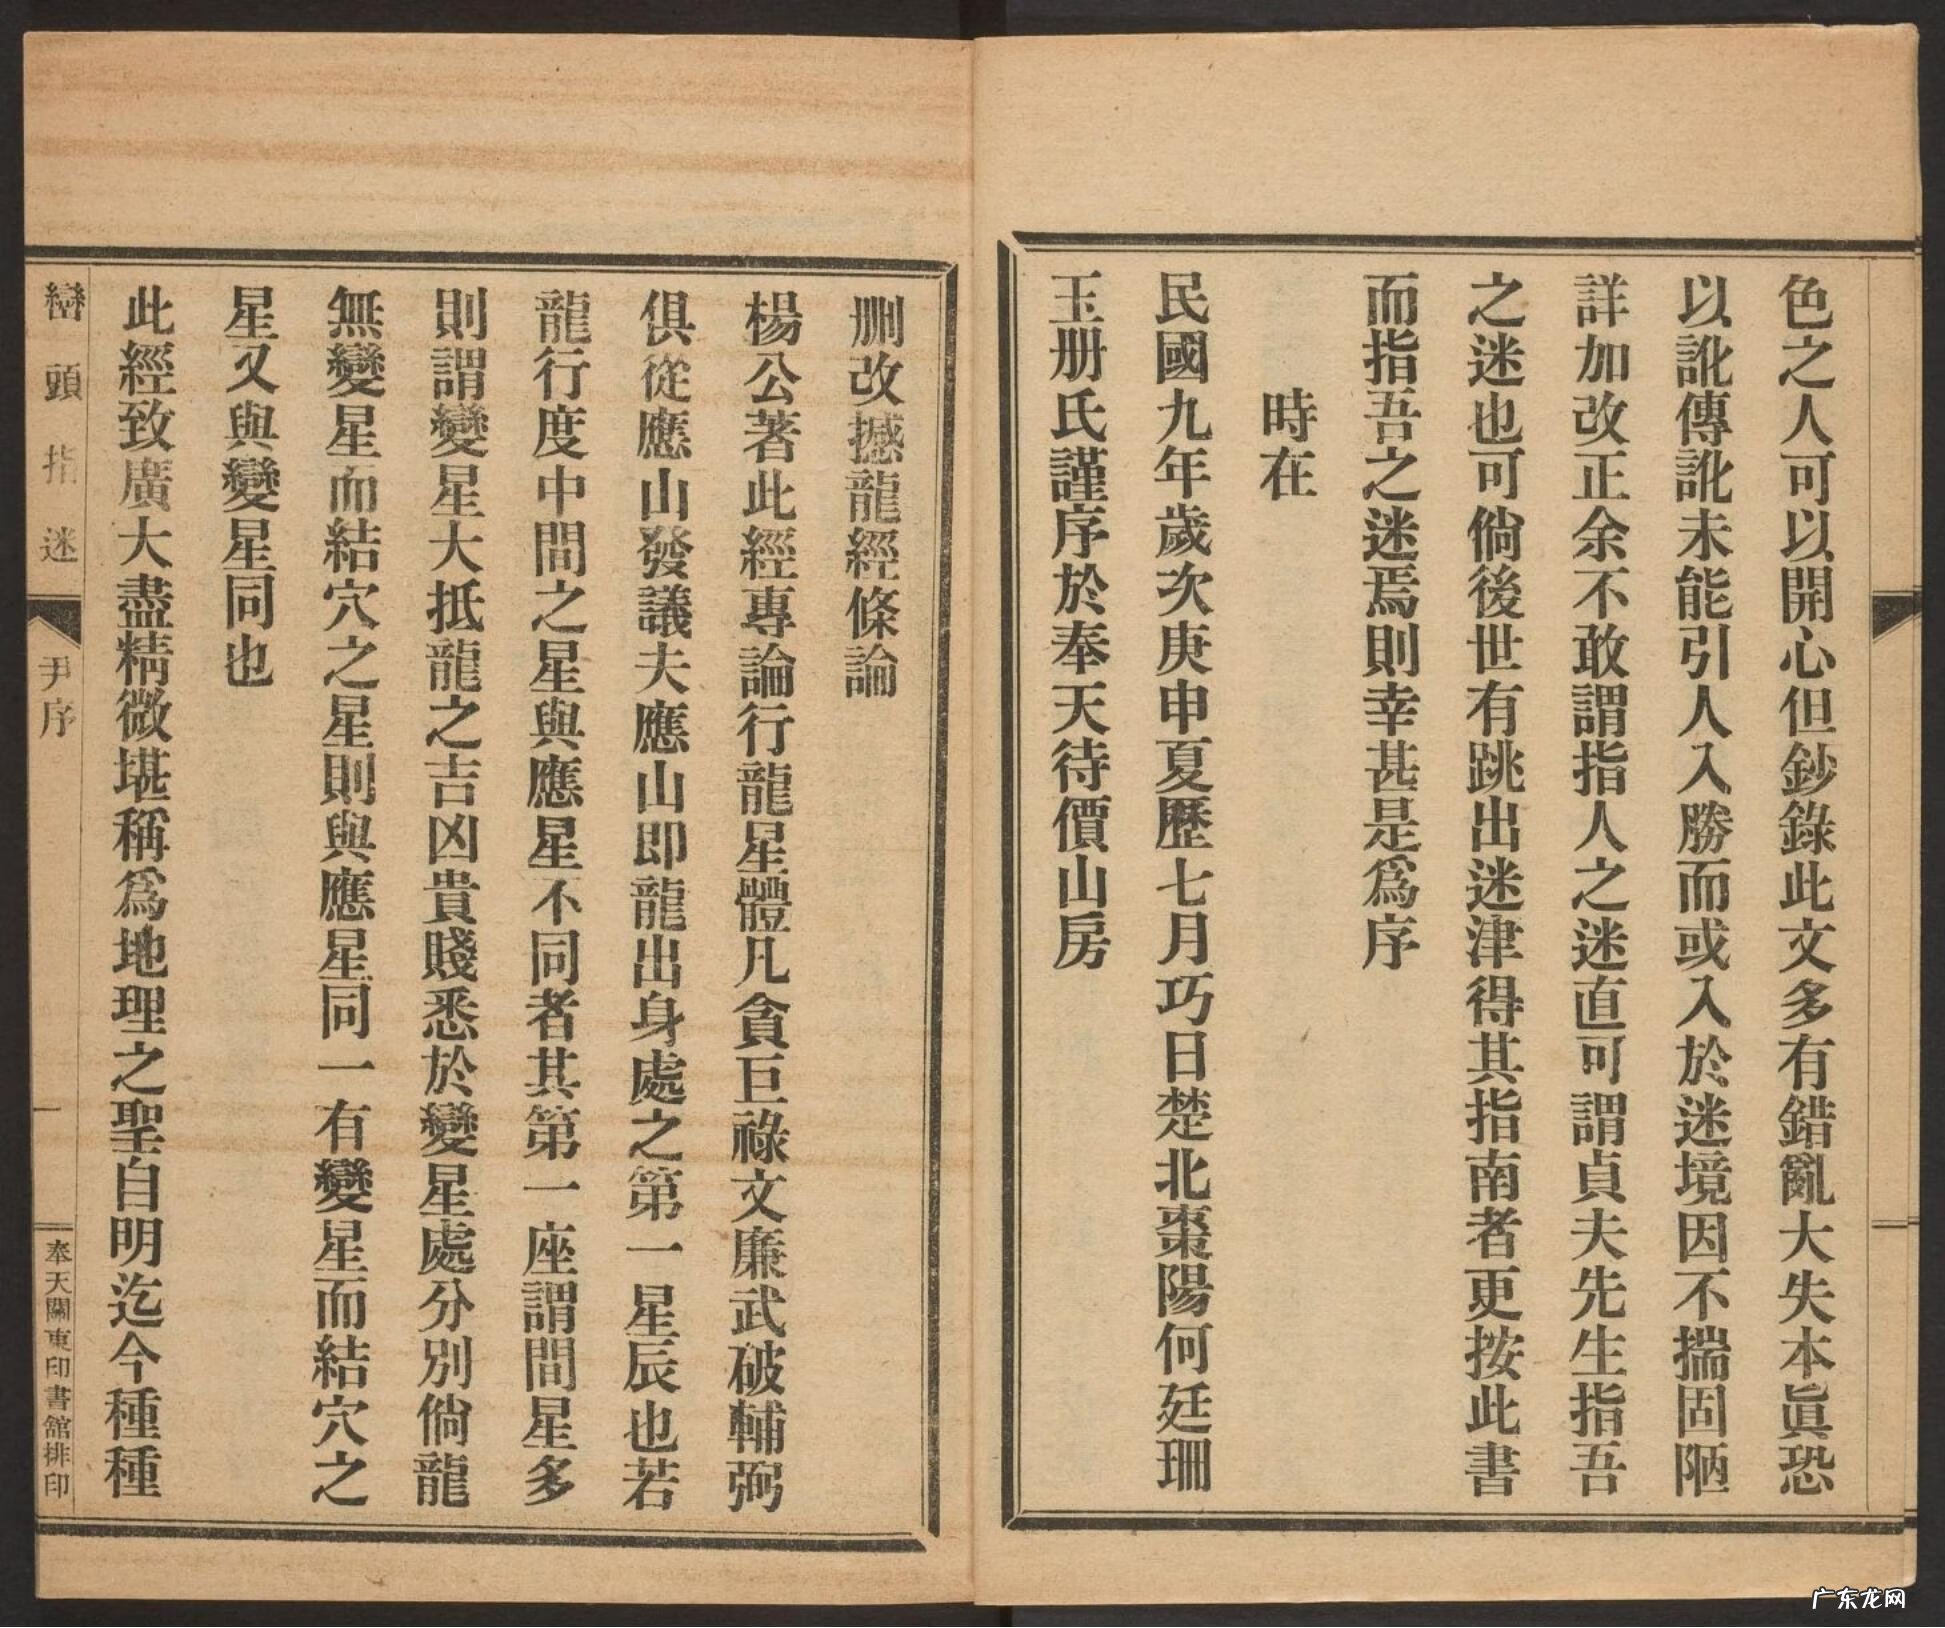 色之人可以開心但鈔錄此文多有錯亂大失本眞恐
以訛傳訛未能引人入勝而或入於迷境因不揣固陋
詳加改正余不敢謂指人之迷直可謂貞夫先生指吾
之迷也可倘後世有跳出迷津得其指南者更按此書
而指吾之迷焉則幸甚是爲序
時在
民國九年歲次庚申夏歷七月巧日楚北棗陽何廷珊
玉册氏謹序於奉天待價山房
删改撼龍經條論
楊公著此經專論行龍星體凡貪巨祿文廉武破輔弼
俱從應山發議夫應山即龍出身處之第一星辰也若
龍行度中間之星與應星不同者其第一座謂間星多
則謂變星大抵龍之吉凶貴賤悉於變星處分別倘龍
無變星而結穴之星則與應星同一有變星而結穴之
星又與變星同也
此經致廣大盡精微堪稱爲地理之聖自明迄今種種
巒頭指迷
尹序
一
奉天關東印書舘排印
广东龙网